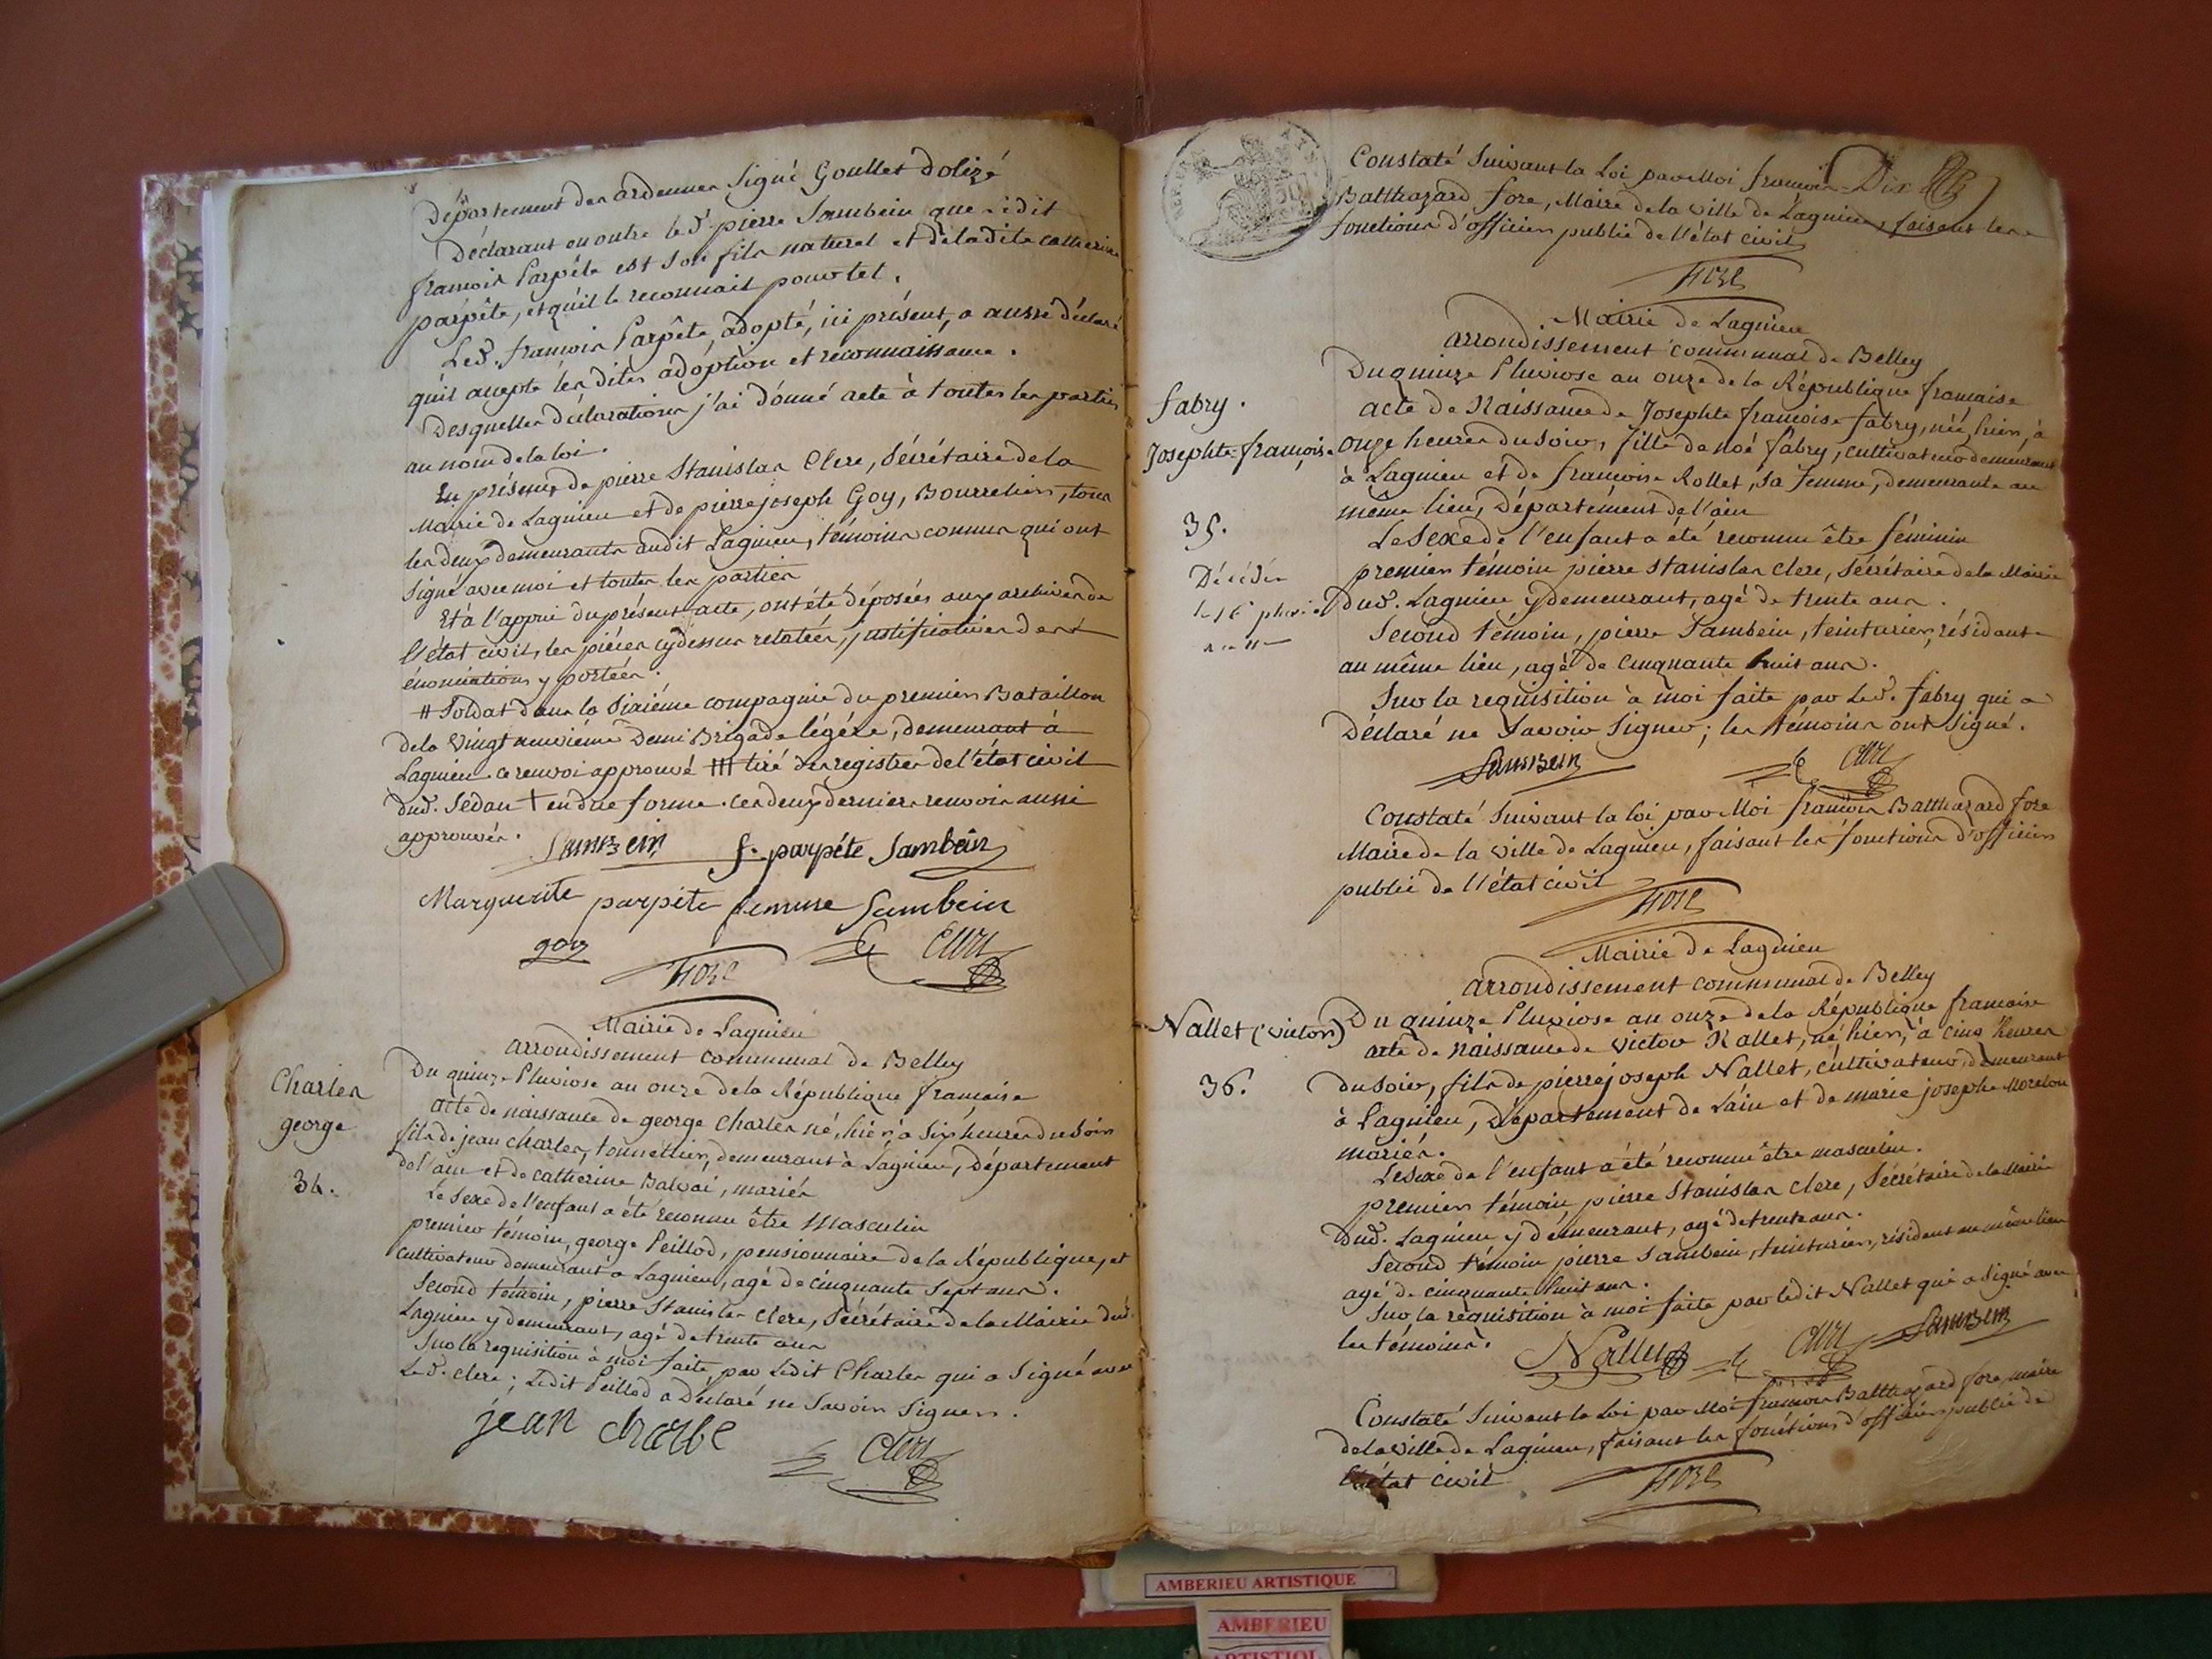 Département des ardennes signé Goullet dolizé
Déclarant en outre led. pierre Sambein que ledit
françois Parpéte est son fils naturel et de ladite catherine
parpéte, et qu'il le reconnait pour tel.
Led. françois Parpête, adopté, ici présent, a aussi déclaré
qu'il accepte les dites adoption et reconnaissance.
Desquelles déclarations j'ai donné acte à toutes les parties
au nom de la loi.
En présence de pierre Stanislas Clerc, Sécrétaire de la
Mairie de Lagnieu et de pierre joseph Goy, Bourrelier, tous
les deux demeurants audit Lagnieu, témoins connus qui ont
signé avec moi et toutes les parties
Et à l'appui du présent acte, ont été déposées aux archives de
l'état civil, les piéces cydessus relatées, justificatives des
énonciations y portées.
# Soldat dans la sixiéme compagnie du premier Bataillon
de la vingt neuviéme Demi Brigade légére, demeurant à
Lagnieu ce renvoi approuvé ### tiré des registres de l'état civil
dud. Sedan † en due forme. ces deux derniers renvois aussi
approuvés.
Sambein f. parpéte Sambein
Marguerite parpéte femme Sambein
goy Fore Clerc
Mairie de Lagnieu
arrondissement communal de Belley
Charles
george
34.
Du quinze Pluviose an onze de la République francaise
acte de naissance de george Charles né, hier, à six heures du soir
fils de jean charles, tonnellier, demeurant à Lagnieu, Département
de l'ain et de catherine Balvai, mariés
Le sexe de l'enfant a été reconnu être Masculin
premier témoin, george Peillod, pensionnaire de la République, et
cultivateur demeurant a Lagnieu, agé de cinquante sept ans.
Second témoin, pierre Stanislas Clerc, Sécrétaire de la Mairie dud.
Lagnieu y demeurant, agé de trente ans
Sur la requisition à moi faite, par Ledit Charles qui a signé avec
Led. clerc; Ledit Peillod a Déclaré ne Savoir Signer.
jean charle Clerc
Dix
Constaté suivant la Loi par Moi françois
Balthazard fore, Maire de la ville de Lagnieu, faisant les
fonctions d'officier public de l'état civil
Fore
Mairie de Lagnieu
arrondissement communal de Belley
fabry.
Josephte françoise
35.
Décédée
le 16 pluviose
an 11
Du quinze Pluviose an onze de la République francaise
acte de Naissance de Josephte françoise fabry, née, hier, à
onze heures du soir, fille de noé fabry, cultivateur demeurant
à Lagnieu et de françoise Rollet, sa femme, demeurante au
même lieu, Département de l'ain
Le sexe de l'enfant a été reconnu être féminin
premier témoin pierre Stanislas clerc, Sécrétaire de la Mairie
dud. Lagnieu y demeurant, agé de trente ans.
Second témoin, pierre Sambein, teinturier, résidant
au même lieu, agé de cinquante huit ans.
Sur la requisition à moi faite par Led. fabry qui a
Déclaré ne Savoir signer; les témoins ont signé.
Sambein Clerc
Constaté suivant la loi par Moi françois Balthazard fore
Maire de la ville de Lagnieu, faisant les fonctions d'officier
public de l'état civil
Fore
Mairie de Lagnieu
arrondissement communal de Belley
Nallet (victor)
36.
Du quinze Pluviose an onze de la République francaise
acte de naissance de victor Nallet, né hier, à cinq heures
du soir, fils de pierre joseph Nallet, cultivateur, demeurant
à Lagnieu, Département de Lain et de marie josephe Morelou
mariés.
Le sexe de l'enfant a été reconnu être masculin.
premier témoin, pierre Stanislas clerc, Sécrétaire de la Mairie
dud. Lagnieu y demeurant, agé de trente ans.
Second témoin pierre Sambein, teinturier, résident au même lieu
agé de cinquante huit ans.
Sur la requisition à moi faite par ledit Nallet qui a signé avec
les témoins.
Nallet Clerc Sambein
Constaté suivant la loi par Moi françois Balthazard fore, maire
de la ville de Lagnieu, faisant les fonctions d'officier public de
l'état civil
Fore
AMBERIEU ARTISTIQUE
AMBERIEU